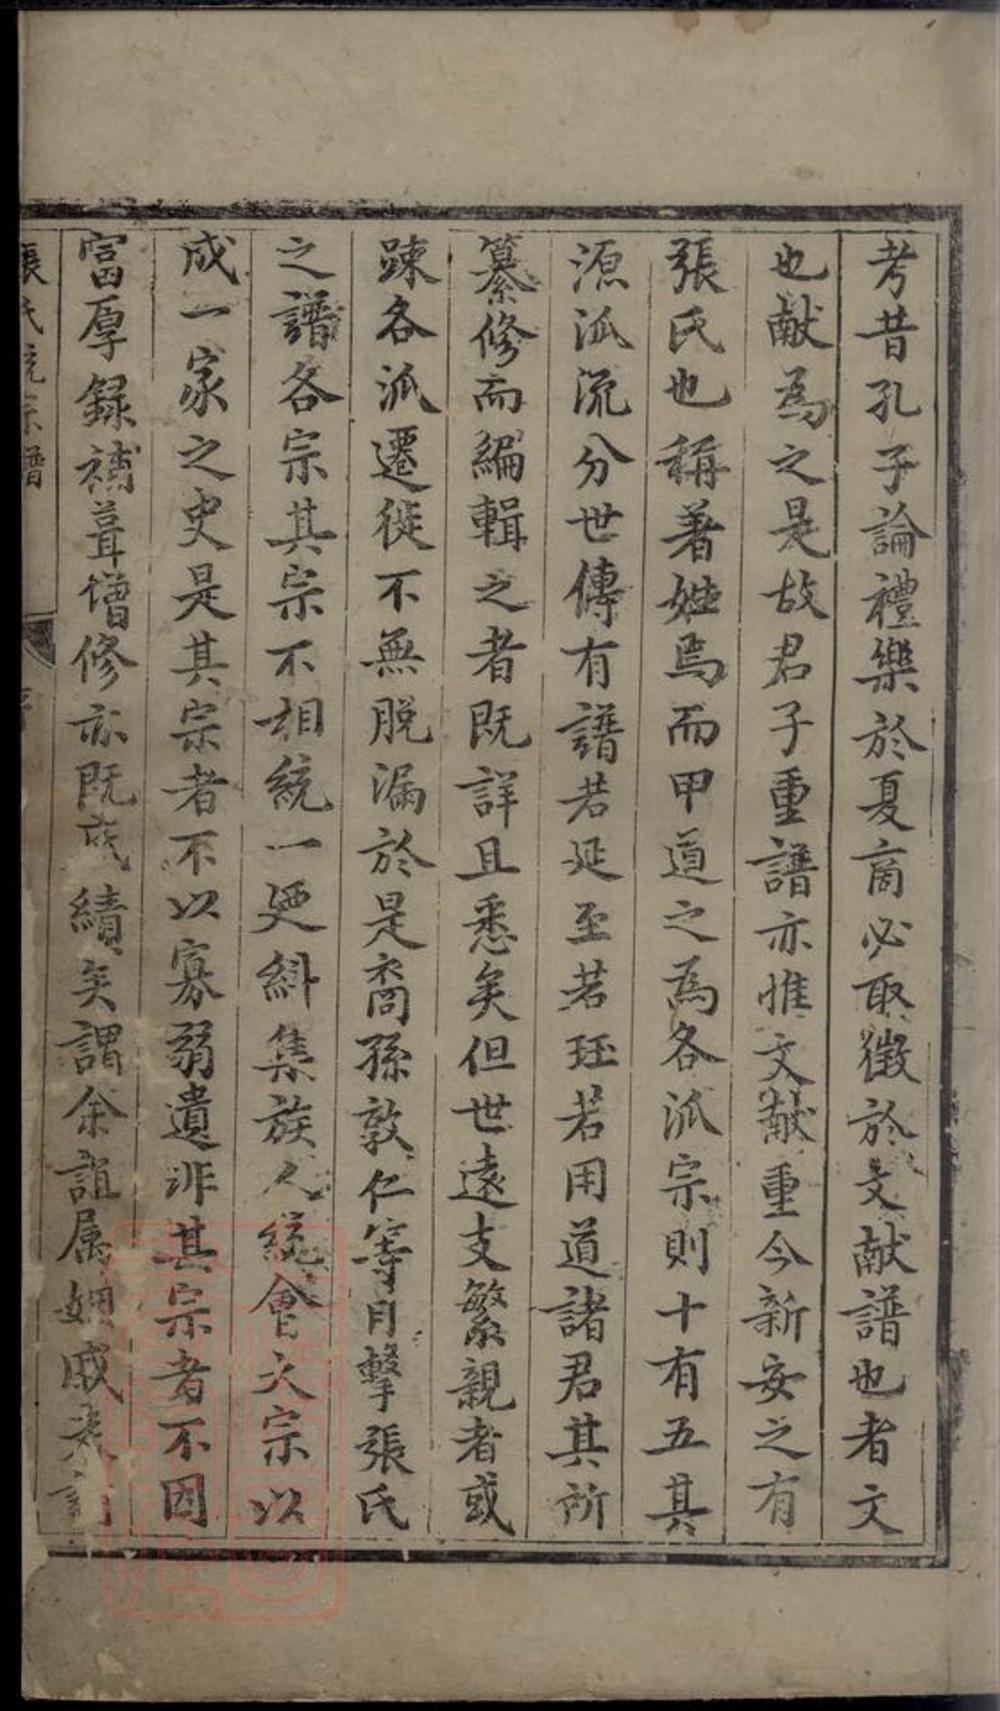 考昔孔子論禮樂於夏商必取徵於文献譜也者文
也献為之是故君子重譜亦惟文献重今新安之有
張氏也稱著姓焉而甲道之為各派宗則十有五其
源派流分世傳有譜若延至若珏若用道諸君其所
纂修而編輯之者既詳且悉矣但世遠支繁親者或
踈各派遷徙不無脱漏於是裔孫敦仁等目擊張氏
之譜各宗其宗不相統一爰糾集族人統會大宗以
成一家之史是其宗者不以寡弱遺非其宗者不因
富厚録補葺增修亦既成績矣謂余誼属姻戚
張氏統宗譜